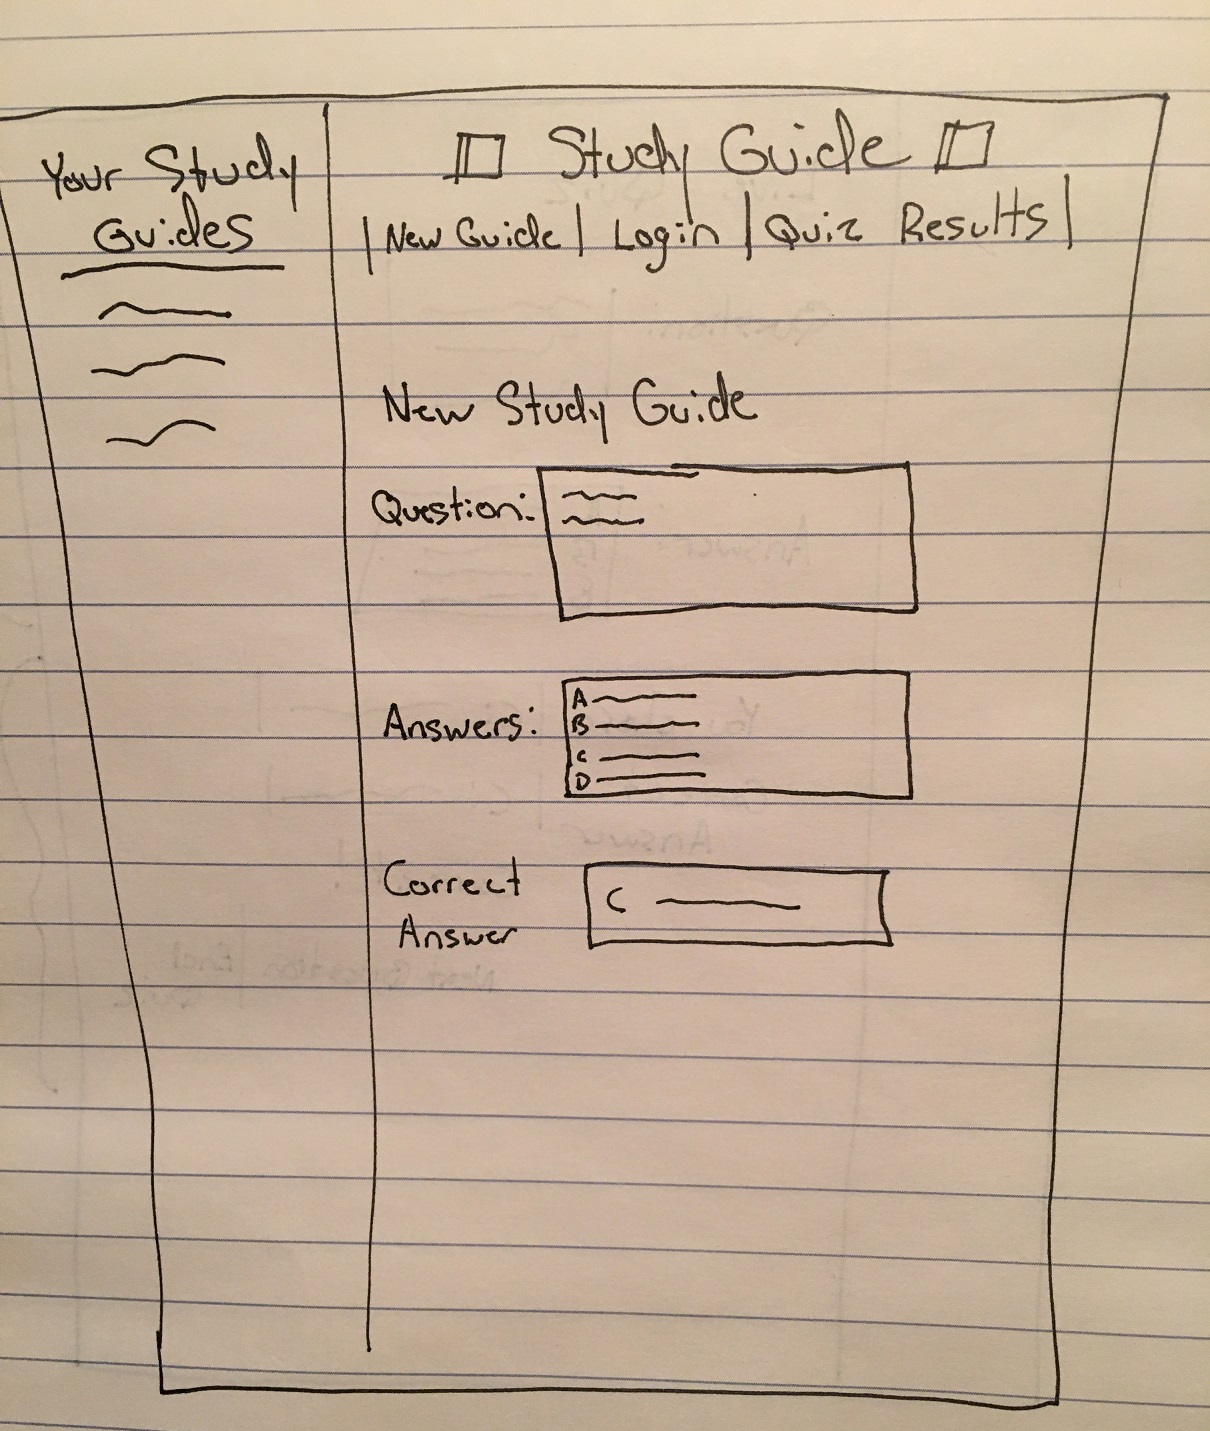 Your Study
Guides
Study Guide
|New Guide| Login |Quiz Results|
New Study Guide
Question:
Answers:
A
B
C
D
Correct
Answer
C